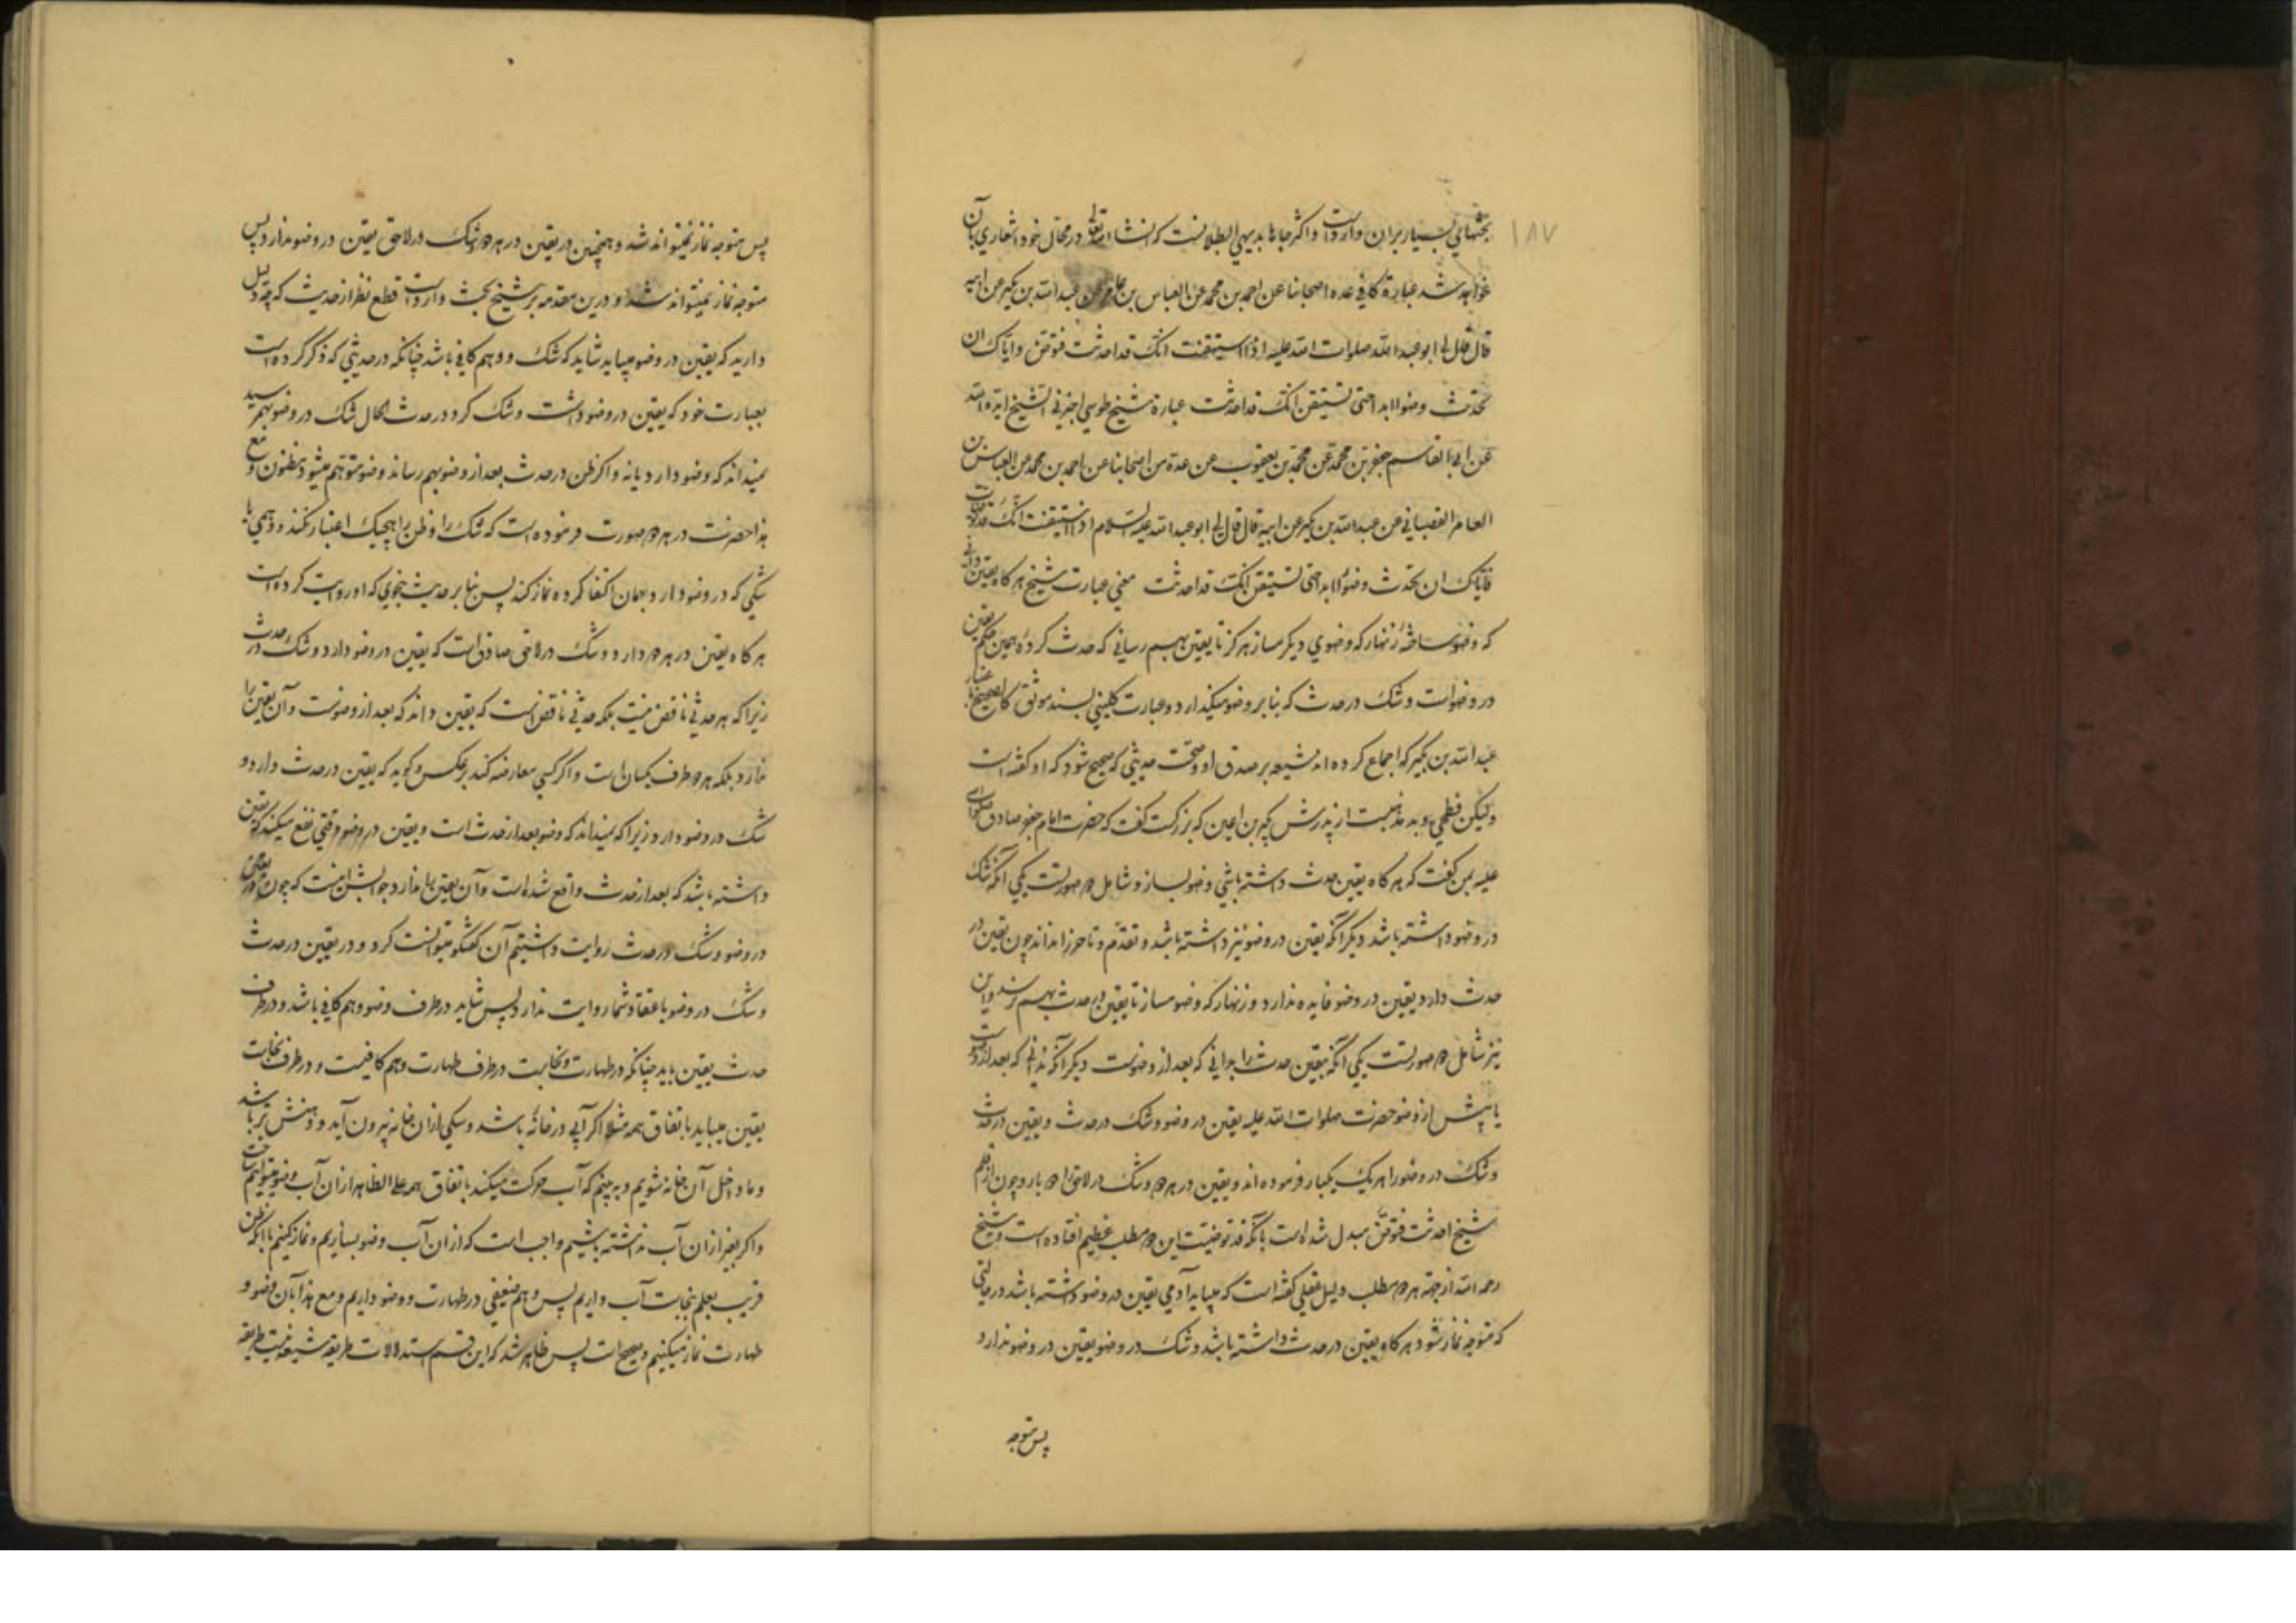 ۱۸۷
بحثهای بسیار بران وارد است و اکثر جاها بدیهی البطلانست که انشاء الله تعالی در محال خود اشعاری بآن
خواهد شد عبارة کافی عده اصحابنا عن احمد بن محمد عن العباس بن عامر عن عبد الله بن بکیر عن ابیه
قال قال لی ابو عبد الله صلوات الله علیه اذا استیقنت انک قد احدثت فتوضّ و ایاک ان
تحدث وضوءا ابدا حتی تستیقن انک قد احدثت عبارة شیخ طوسی اخبرنی الشیخ ایّده الله
عن ابی القاسم جعفر بن محمد عن محمد بن یعقوب عن عدة من اصحابنا عن احمد بن محمد عن العباس بن
العامر القصبانی عن عبد الله بن بکیر عن ابیه قال قال لی ابو عبد الله علیه السلام اذا استیقنت انک قد توضأت
فایاک ان تحدث وضوءا ابدا حتی تستیقن انک قد احدثت معنی عبارت شیخ هر کاه یقین دانی
که وضو ساختهٔ زنهار که وضوی دیکر مساز هرکز تا یقین بهم رسانی که حدث کردهٔ همین حکم یقین
در وضوات و شک در حدث که بنا بر وضو میکذارد و عبارت کلینی بسند موثق کالصحیح باعتبار
عبد الله بن بکیر که اجماع کرده اند شیعه بر صدق او و صحت حدیثی که صحیح شود که او کفته است
و لیکن فطحی بد مذهبست از پدرش بکیر بن اعین که بزرکست کفت که حضرت امام جعفر صادق صلوات الله
علیه بمن کفت که هر کاه یقین حدث داشته باشی وضو بساز و شامل دو صورتست یکی آنکه شک
در وضو داشته باشد دیکر آنکه یقین در وضو نیز داشته باشد و تقدم و تاخر را نداند چون یقین در
حدث دارد یقین در وضو فایده ندارد و زنهار که وضو مساز تا یقین در حدث بهم رسد و این
نیز شامل دو صورتست یکی آنکه یقین حدث را بدانی که بعد از وضوست دیکر آنکه ندانی که بعد از وضوست
یا پیش از وضو حضرت صلوات الله علیه یقین در وضو و شک در حدث و یقین در حدث
و شک در وضو را هر یک یکبار فرموده اند و یقین در هر دو و شک در لاحق را دو بار و چون از قلم
شیخ احدثت فتوضّ مبدل شده است بانک قد توضیت این دو مطلب عظیم افتاده است و شیخ
رحمه الله از جهة هر دو مطلب دلیل عقلی کفته است که میباید آدمی یقین در وضو داشته باشد در حالتی
که متوجه نماز شود و هر کاه یقین در حدث داشته باشد و شک در وضو یقین در وضو ندارد
پس متوجه
پس متوجه نماز نمیتواند شد و همچنین در یقین در هر دو و شک در لاحق یقین در وضو ندارد پس
متوجه نماز نمیتواند شد و درین مقدمه بر شیخ بحث وارد است قطع نظر از حدیث که چه دلیل
دارید که یقین در وضو میباید شاید که شک و وهم کافی باشد چنانکه در حدیثی که ذکر کرده است
بعبارت خود که یقین در وضو داشت و شک کرد در حدث الحال شک در وضو بهم رسید
نمیداند که وضو دارد یا نه و اکر ظن در حدث بعد از وضو بهم رساند وضو متوهم میشود نه مظنون و مع
هذا حضرت در هر دو صورت فرموده است که شک را و ظن را هیچیک اعتبار نکند و وهمی یا
شکی که در وضو دارد بهمان اکتفا کرده نماز کند پس بنا بر حدیث بنحوی که او روایت کرده است
هر کاه یقین در هر دو دارد و شک در لاحق صادق است که یقین در وضو دارد و شک در حدث
زیرا که هر حدثی ناقض نیست بلکه حدثی ناقض است که یقین داند که بعد از وضوست و آن یقین را
ندارد بلکه هر دو طرف یکسان است و اکر کسی معارضه کند بر عکس و کوید که یقین در حدث دارد و
شک در وضو دارد زیرا که نمیداند که وضو بعد از حدث است و یقین در وضو وقتی نفع میکند که یقین
داشته باشد که بعد از حدث واقع شده است و آن یقین را ندارد جوابش اینست که چون یقین
در وضو و شک در حدث روایت داشتیم آن کفتکو میتوانست کرد و در یقین در حدث
و شک در وضو باعتقاد شما روایت ندارد پس شاید در طرف وضو وهم کافی باشد و در طرف
حدث یقین باید چنانکه در طهارت و نجاست در طرف طهارت وهم کافیست و در طرف نجاست
یقین میباید باتفاق همه مثلا اکر آبی در خانهٔ باشد و سکی ازان خانه بیرون آید و دهنش تر باشد
و ما داخل آن خانه شویم و به بینیم که آب حرکت میکند باتفاق همه علی الظاهر ازان آب وضو میتوانیم ساخت
و اکر بغیر ازان آب نداشته باشیم واجب است که ازان آب وضو بسازیم و نماز کنیم با آنکه ظن
قریب بعلم بنجاست آب داریم پس وهم ضعیفی در طهارت و وضو داریم و مع هذا بآن وضو و
طهارت نماز میکنیم و صحیحست پس ظاهر شد که این قسم استدلالات طریقه شیعه نیست طریقه